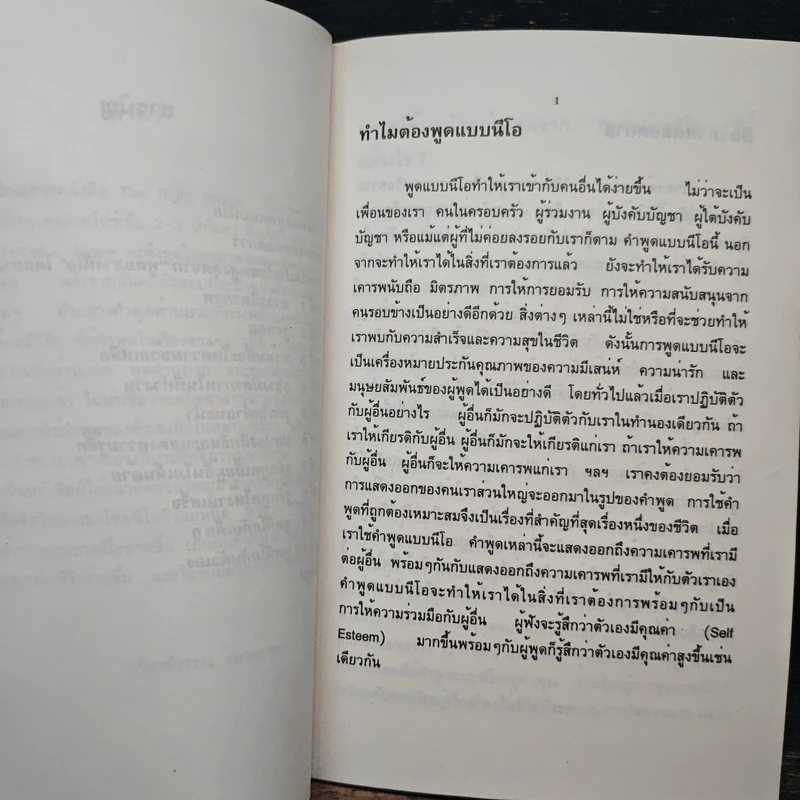 1
ทำไมต้องพูดแบบนีโอ
พูดแบบนีโอทำให้เราเข้ากับคนอื่นได้ง่ายขึ้น ไม่ว่าจะเป็น
เพื่อนของเรา คนในครอบครัว ผู้ร่วมงาน ผู้บังคับบัญชา ผู้ใต้บังคับ
บัญชา หรือแม้แต่ผู้ที่ไม่ค่อยลงรอยกับเราก็ตาม คำพูดแบบนีโอนี้ นอก
จากจะทำให้เราได้ในสิ่งที่เราต้องการแล้ว ยังจะทำให้เราได้รับความ
เคารพนับถือ มิตรภาพ การให้การยอมรับ การให้ความสนับสนุนจาก
คนรอบข้างเป็นอย่างดีอีกด้วย สิ่งต่างๆ เหล่านี้ไม่ใช่หรือที่จะช่วยทำให้
เราพบกับความสำเร็จและความสุขในชีวิต ดังนั้นการพูดแบบนีโอจะ
เป็นเครื่องหมายประกันคุณภาพของความมีเสน่ห์ ความน่ารัก และ
มนุษยสัมพันธ์ของผู้พูดได้เป็นอย่างดี โดยทั่วไปแล้วเมื่อเราปฏิบัติตัว
กับผู้อื่นอย่างไร ผู้อื่นก็มักจะปฏิบัติตัวกับเราในทำนองเดียวกัน ถ้า
เราให้เกียรติกับผู้อื่น ผู้อื่นก็มักจะให้เกียรติแก่เรา ถ้าเราให้ความเคารพ
กับผู้อื่น ผู้อื่นก็จะให้ความเคารพแก่เรา ฯลฯ เราคงต้องยอมรับว่า
การแสดงออกของคนเราส่วนใหญ่จะออกมาในรูปของคำพูด การใช้คำ
พูดที่ถูกต้องเหมาะสมจึงเป็นเรื่องที่สำคัญที่สุดเรื่องหนึ่งของชีวิต เมื่อ
เราใช้คำพูดแบบนีโอ คำพูดเหล่านี้จะแสดงออกถึงความเคารพที่เรามี
ต่อผู้อื่น พร้อมๆกันกับแสดงออกถึงความเคารพที่เรามีให้กับตัวเราเอง
คำพูดแบบนีโอจะทำให้เราได้ในสิ่งที่เราต้องการพร้อมๆกับเป็น
การให้ความร่วมมือกับผู้อื่น ผู้ฟังจะรู้สึกว่าตัวเองมีคุณค่า (Self
Esteem) มากขึ้นพร้อมๆกับผู้พูดก็รู้สึกว่าตัวเองมีคุณค่าสูงขึ้นเช่น
เดียวกัน